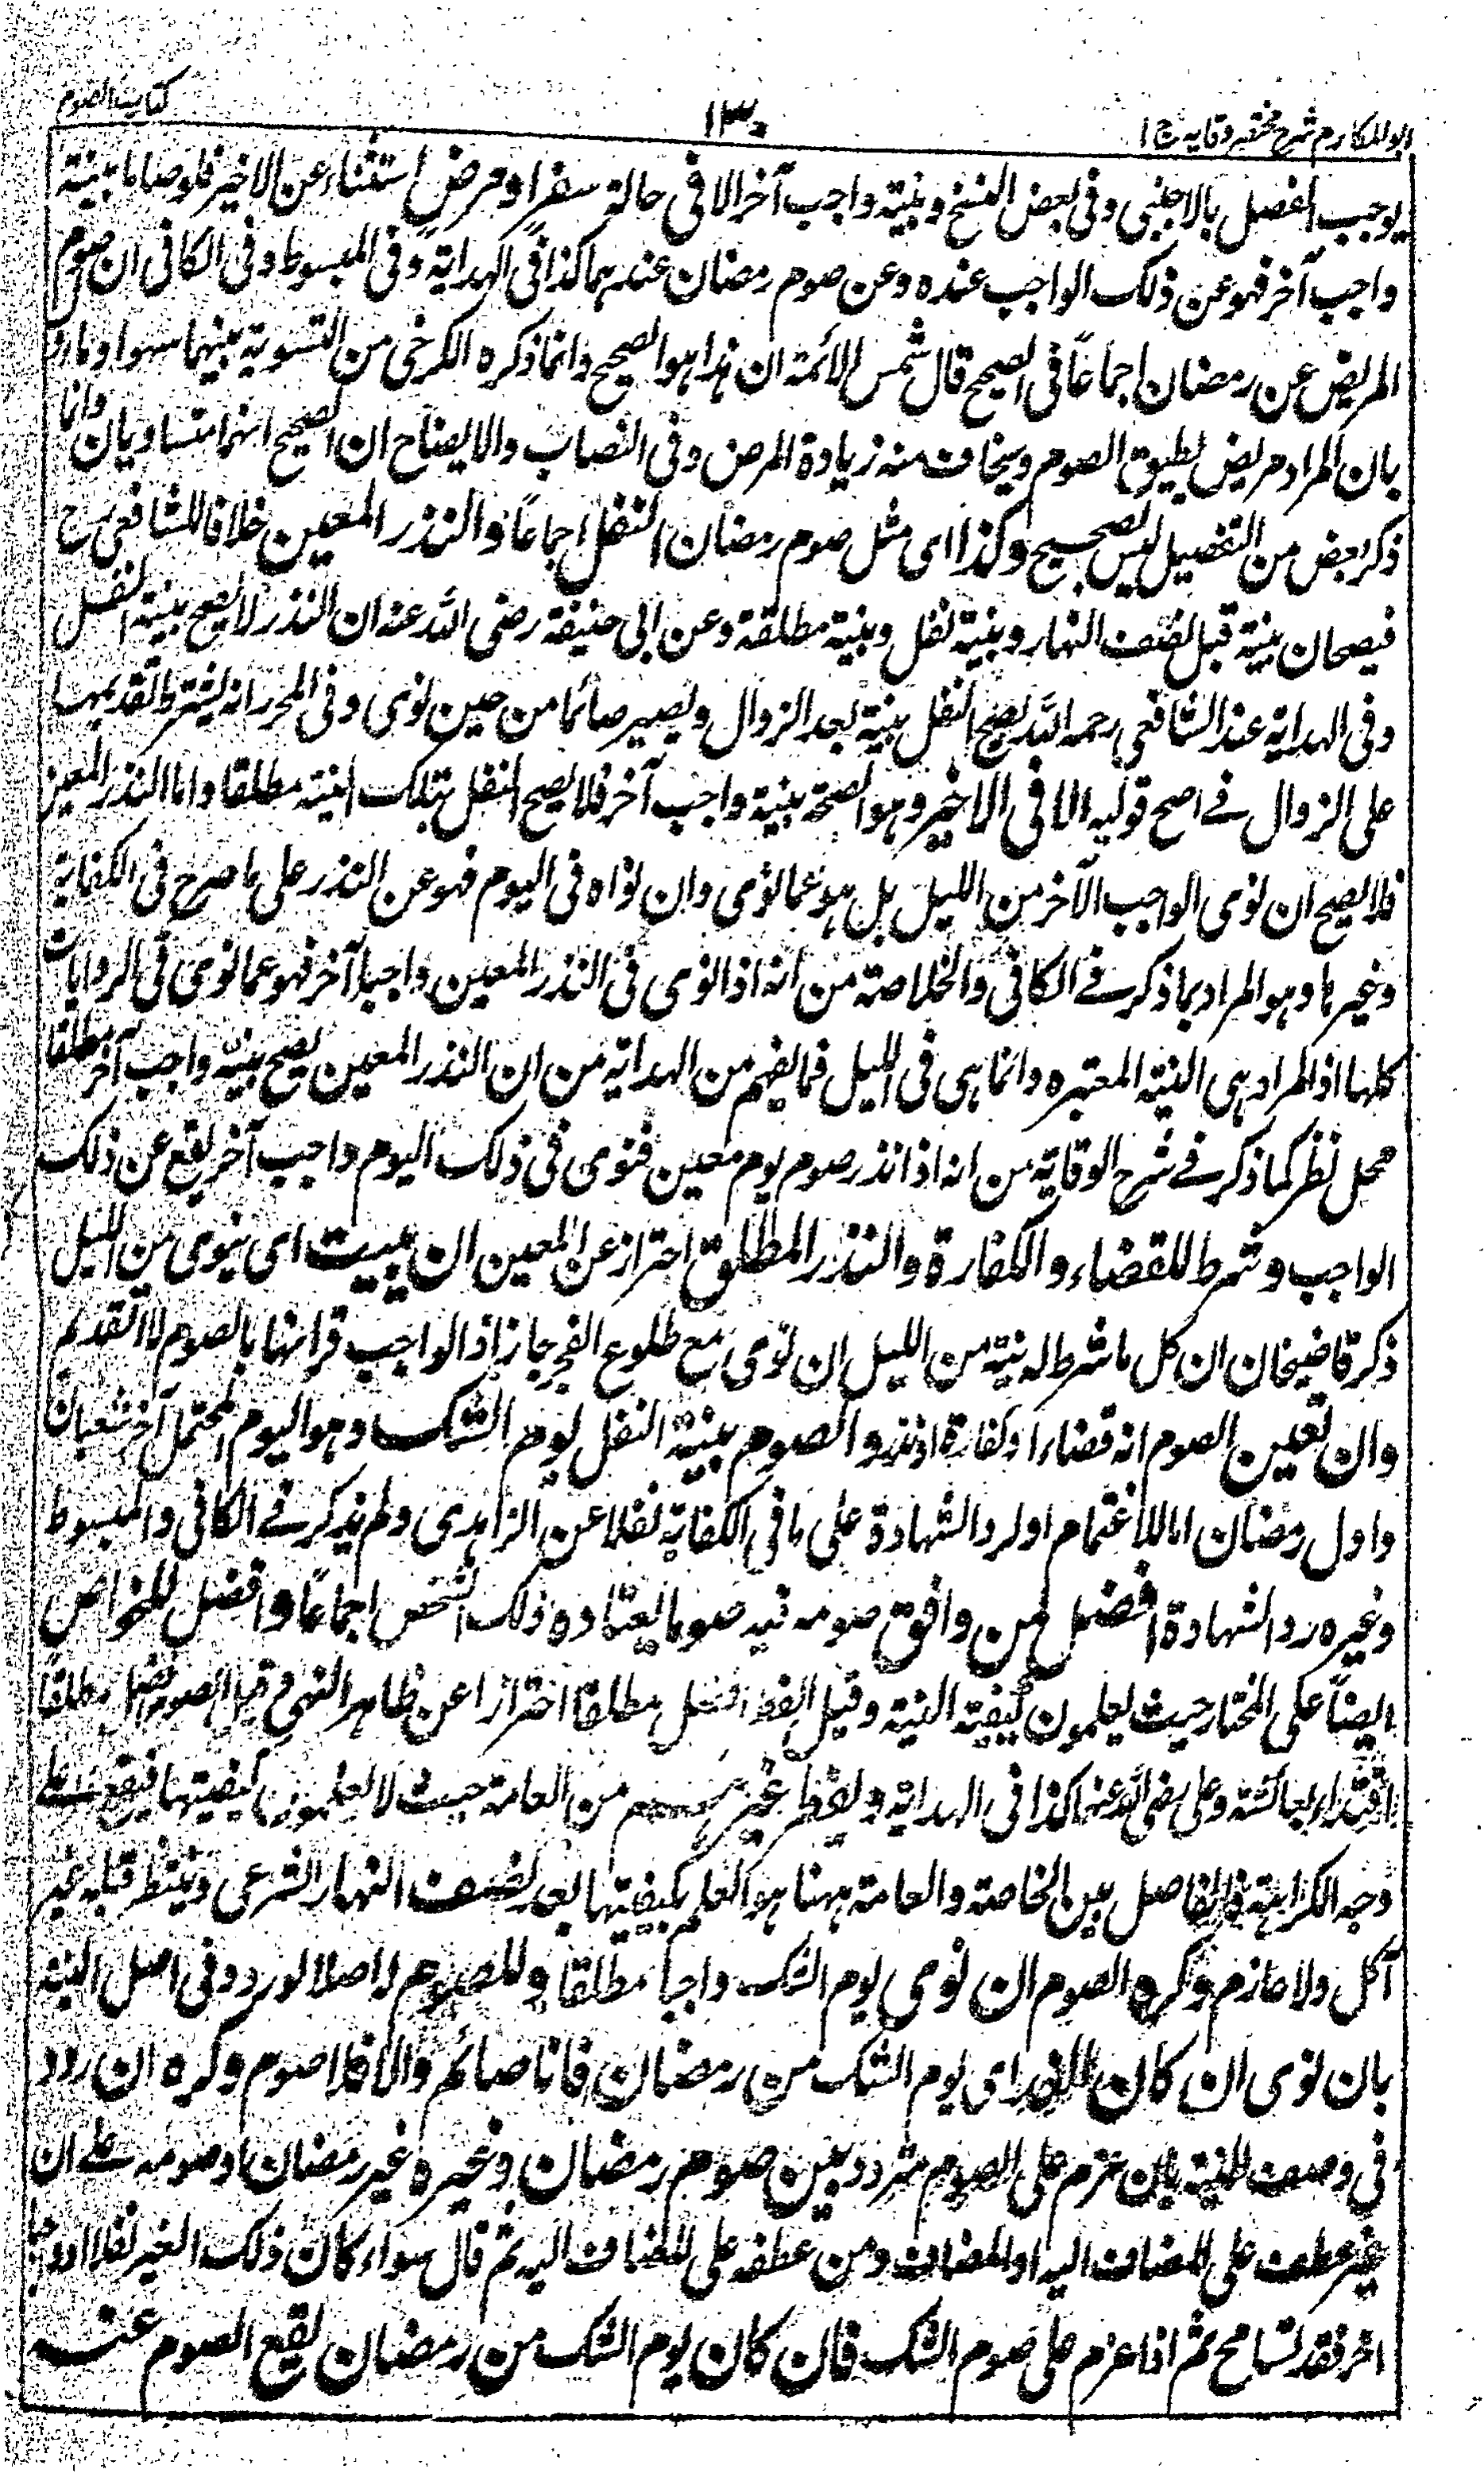 ابو المكارم شرح مختصر وقايه ج ١
١٣٠
كتاب الصوم
يوجب الفصل بالاجنبي وفى بعض النسخ وبنية واجب آخر الا فى حالة سفر او مرض استثناء عن الاخير فلو صاما بنية
واجب آخر فهو عن ذلك الواجب عنده وعن صوم رمضان عندهما كذا فى الهداية وفى المبسوط وفى الكافى ان صوم
المريض عن رمضان اجماعاً فى الصحيح قال شمس الائمة ان هذا هو الصحيح وانما ذكره الكرخى من التسوية بينهما سهوا و
بان المراد مريض يطيق الصوم ويخاف منه زيادة المرض وفى النصاب والايضاح ان الصحيح انهما متساويان واما
ذكر بعض من التفصيل ليس بصحيح وكذا اى مثل صوم رمضان النفل اجماعاً والنذر المعين خلافا للشافعى رح
فيصحان بنية قبل نصف النهار وبنية نفل وبنية مطلقة وعن ابى حنيفة رضى الله عنه ان النذر لا يصح بنية النفل
وفى الهداية عند الشافعى رحمه الله يصح النفل بنية بعد الزوال ويصير صائما من حين نوى وفى المحرر انه يشترط تقديمها
على الزوال فى اصح قوليه الا فى الاخير وهو الصحة بنية واجب آخر فلا يصح النفل بتلك النية مطلقا واما النذر المعين
فلا يصح ان نوى الواجب الآخر من الليل بل هو عما نوى وان نواه فى اليوم فهو عن النذر على ما صرح فى الكفاية
وغيرها وهو المراد بما ذكر فى الكافى والخلاصة من انه اذا نوى فى النذر المعين واجبا آخر فهو عما نوى فى الروايات
كلها اذ المراد هى النية المعتبره وانما هى فى الليل فما يفهم من الهداية من ان النذر المعين يصح بنية واجب آخر مطلقا
محل نظر كما ذكر فى شرح الوقاية من انه اذا نذر صوم يوم معين فنوى فى ذلك اليوم واجب آخر يقع عن ذلك
الواجب وشرط للقضاء والكفارة والنذر المطلق احتراز عن المعين ان يبيت اى ينوى من الليل
ذكر قاضيخان ان كل ما شرط له نية من الليل ان نوى مع طلوع الفجر جاز اذ الواجب قرانها بالصوم لا التقديم
وان تعين الصوم انه قضاء او كفارة او نذر والصوم بنية النفل يوم الشك وهو اليوم المحتمل آخر شعبان
واول رمضان اما للاغتمام او لرد الشهادة على ما فى الكفاية نقلا عن الزاهدى ولم يذكر فى الكافى والمبسوط
وغيره رد الشهادة افضل لمن وافق صومه فيه صوما يعتاده ذلك الشخص اجماعاً وافضل للخواص
ايضاً على المختار حيث يعلمون كيفية النية وقيل الفطر افضل مطلقا احترازا عن ظاهر النهى وقيل الصوم افضل مطلقاً
اقتداء بعائشة وعلى رضى الله عنهما كذا فى الهداية ويفطر غيرهم من العامة حيث لا يعلمون كيفيتها فيقع على
وجه الكراهة فالفاصل بين الخاصة والعامة ههنا هو العلم بكيفيتها بعد نصف النهار الشرعى وينتظر قبله غير
آكل ولا عازم وكره الصوم ان نوى يوم الشك واجبا مطلقا ولا صوم اصلا لو ردد فى اصل النية
بان نوى ان كان الغد اى يوم الشك من رمضان فانا صائم والا فلا اصوم وكره ان ردد
فى وصف النية بان عزم على الصوم متردد بين صوم رمضان وغيره غير رمضان او صومه على ان
غير عطف على المضاف اليه او المضاف ومن عطفه على المضاف اليه ثم قال سواء كان ذلك الغير نفلا او واجبا
آخر فقد تسامح ثم اذا عزم على صوم الشك فان كان يوم الشك من رمضان يقع الصوم عنه